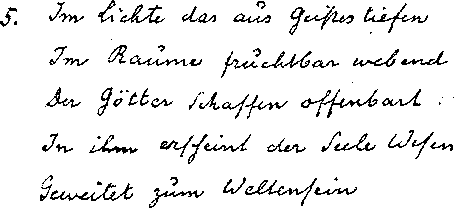 5. Im Lichte das aus Geistestiefen
Im Raume fruchtbar webend
Der Götter Schaffen offenbart :
In ihm erscheint der Seele Wesen
Geweitet zum Weltensein